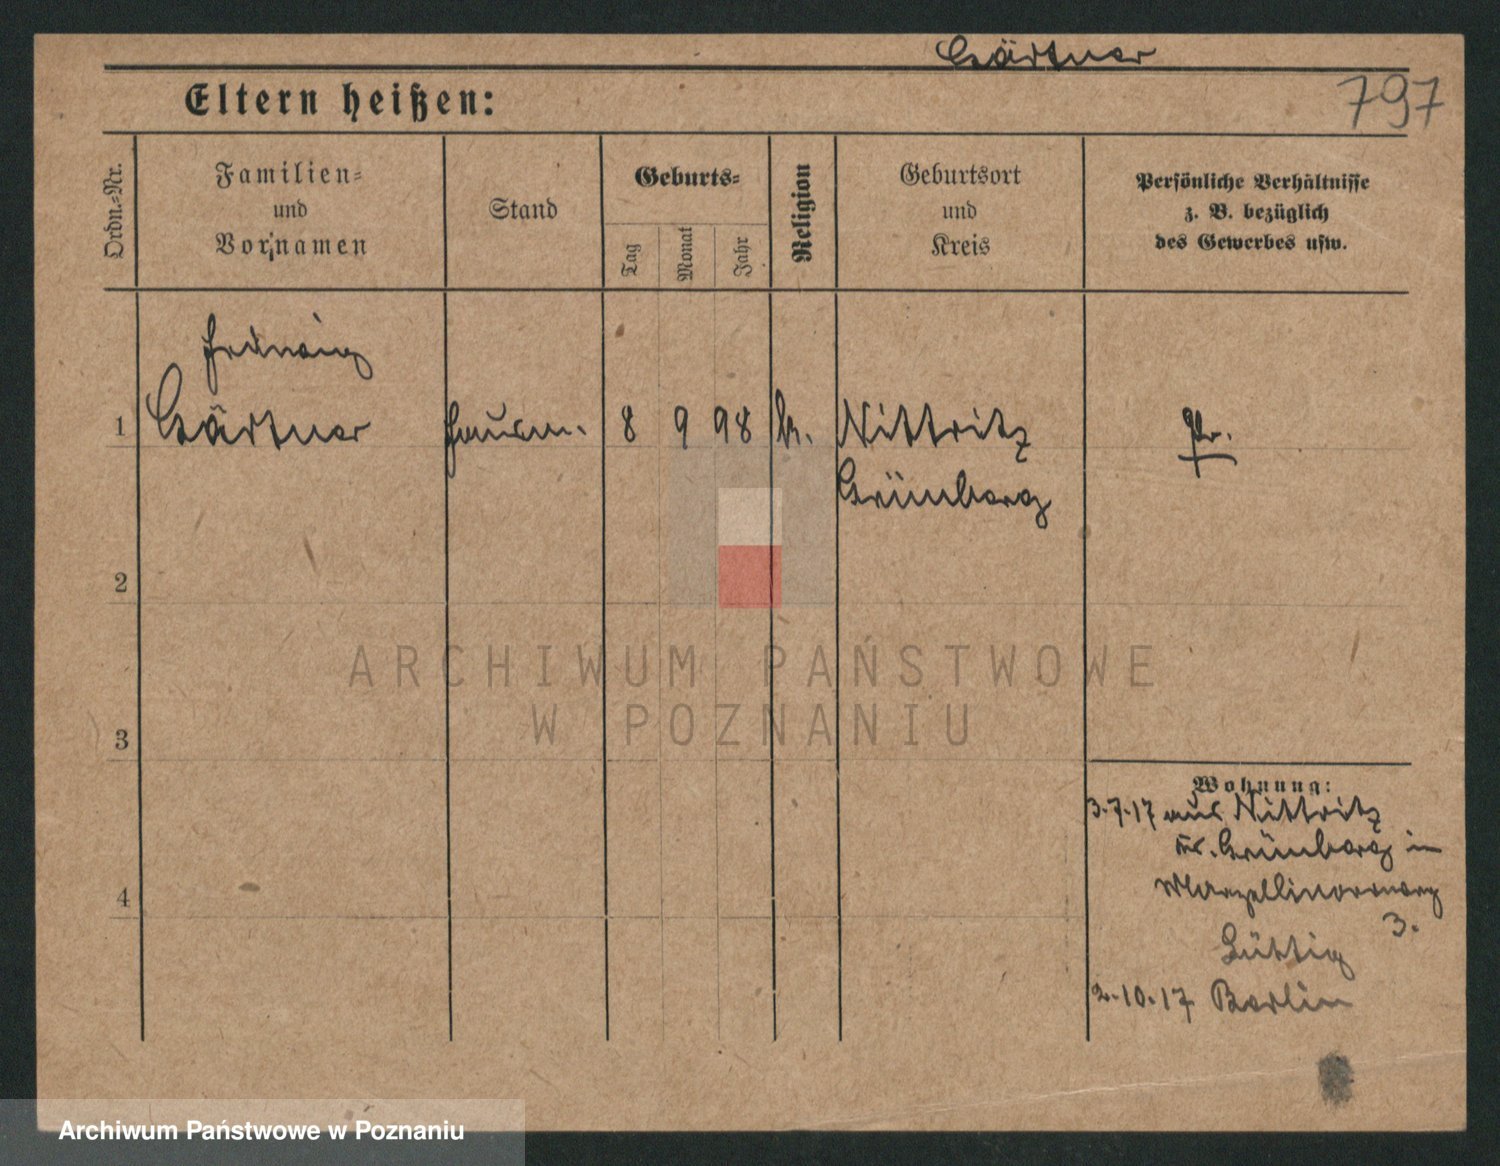 Gärtner
797
Eltern heißen:
Ordn.-Nr.
Familien-
und
Vornamen
Stand
Geburts-
Tag
Monat
Jahr
Religion
Geburtsort
und
Kreis
Persönliche Verhältnisse
z. B. bezüglich
des Gewerbes usw.
1 Gärtner 8 9 98 Nittritz Pr.
Grünberg
2
3
4
Wohnung:
3.7.17 aus Nittritz
Kr. Grünberg in
3.
Lüttig
2.10.17 Berlin
ARCHIWUM PAŃSTWOWE
W POZNANIU
Archiwum Państwowe w Poznaniu